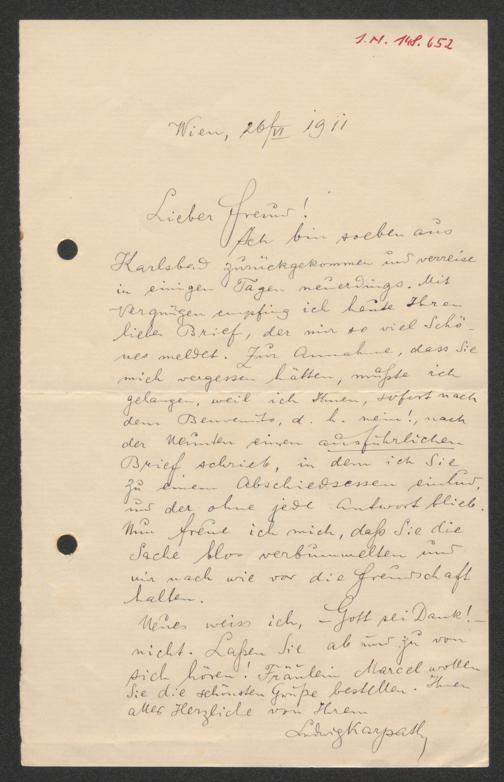 I.N. 148.652
Wien, 26/VI 1911
Lieber Freund!
Ich bin soeben aus
Karlsbad zurückgekommen und verreise
in einigen Tagen neuerdings. Mit
Vergnügen empfing ich heute Ihren
lieben Brief, der mir so viel Schö-
nes meldet. Zur Annahme, dass Sie
mich vergessen hätten, mußte ich
gelangen, weil ich Ihnen, sofort nach
dem Benvenuto, d. h. nein!, nach
der Neunten einen ausführlichen
Brief schrieb, in dem ich Sie
zu einem Abschiedsessen einlud,
und der ohne jede Antwort blieb.
Nun freue ich mich, daß Sie die
Sache blos verbummelten und
mir nach wie vor die Freundschaft
halten.
Neues weiss ich, – Gott sei Dank! –
nicht. Laßen Sie ab und zu von
sich hören! Fräulein Marcel wollen
Sie die schönsten Grüße bestellen. Ihnen
alles Herzliche von Ihrem
Ludwig Karpath